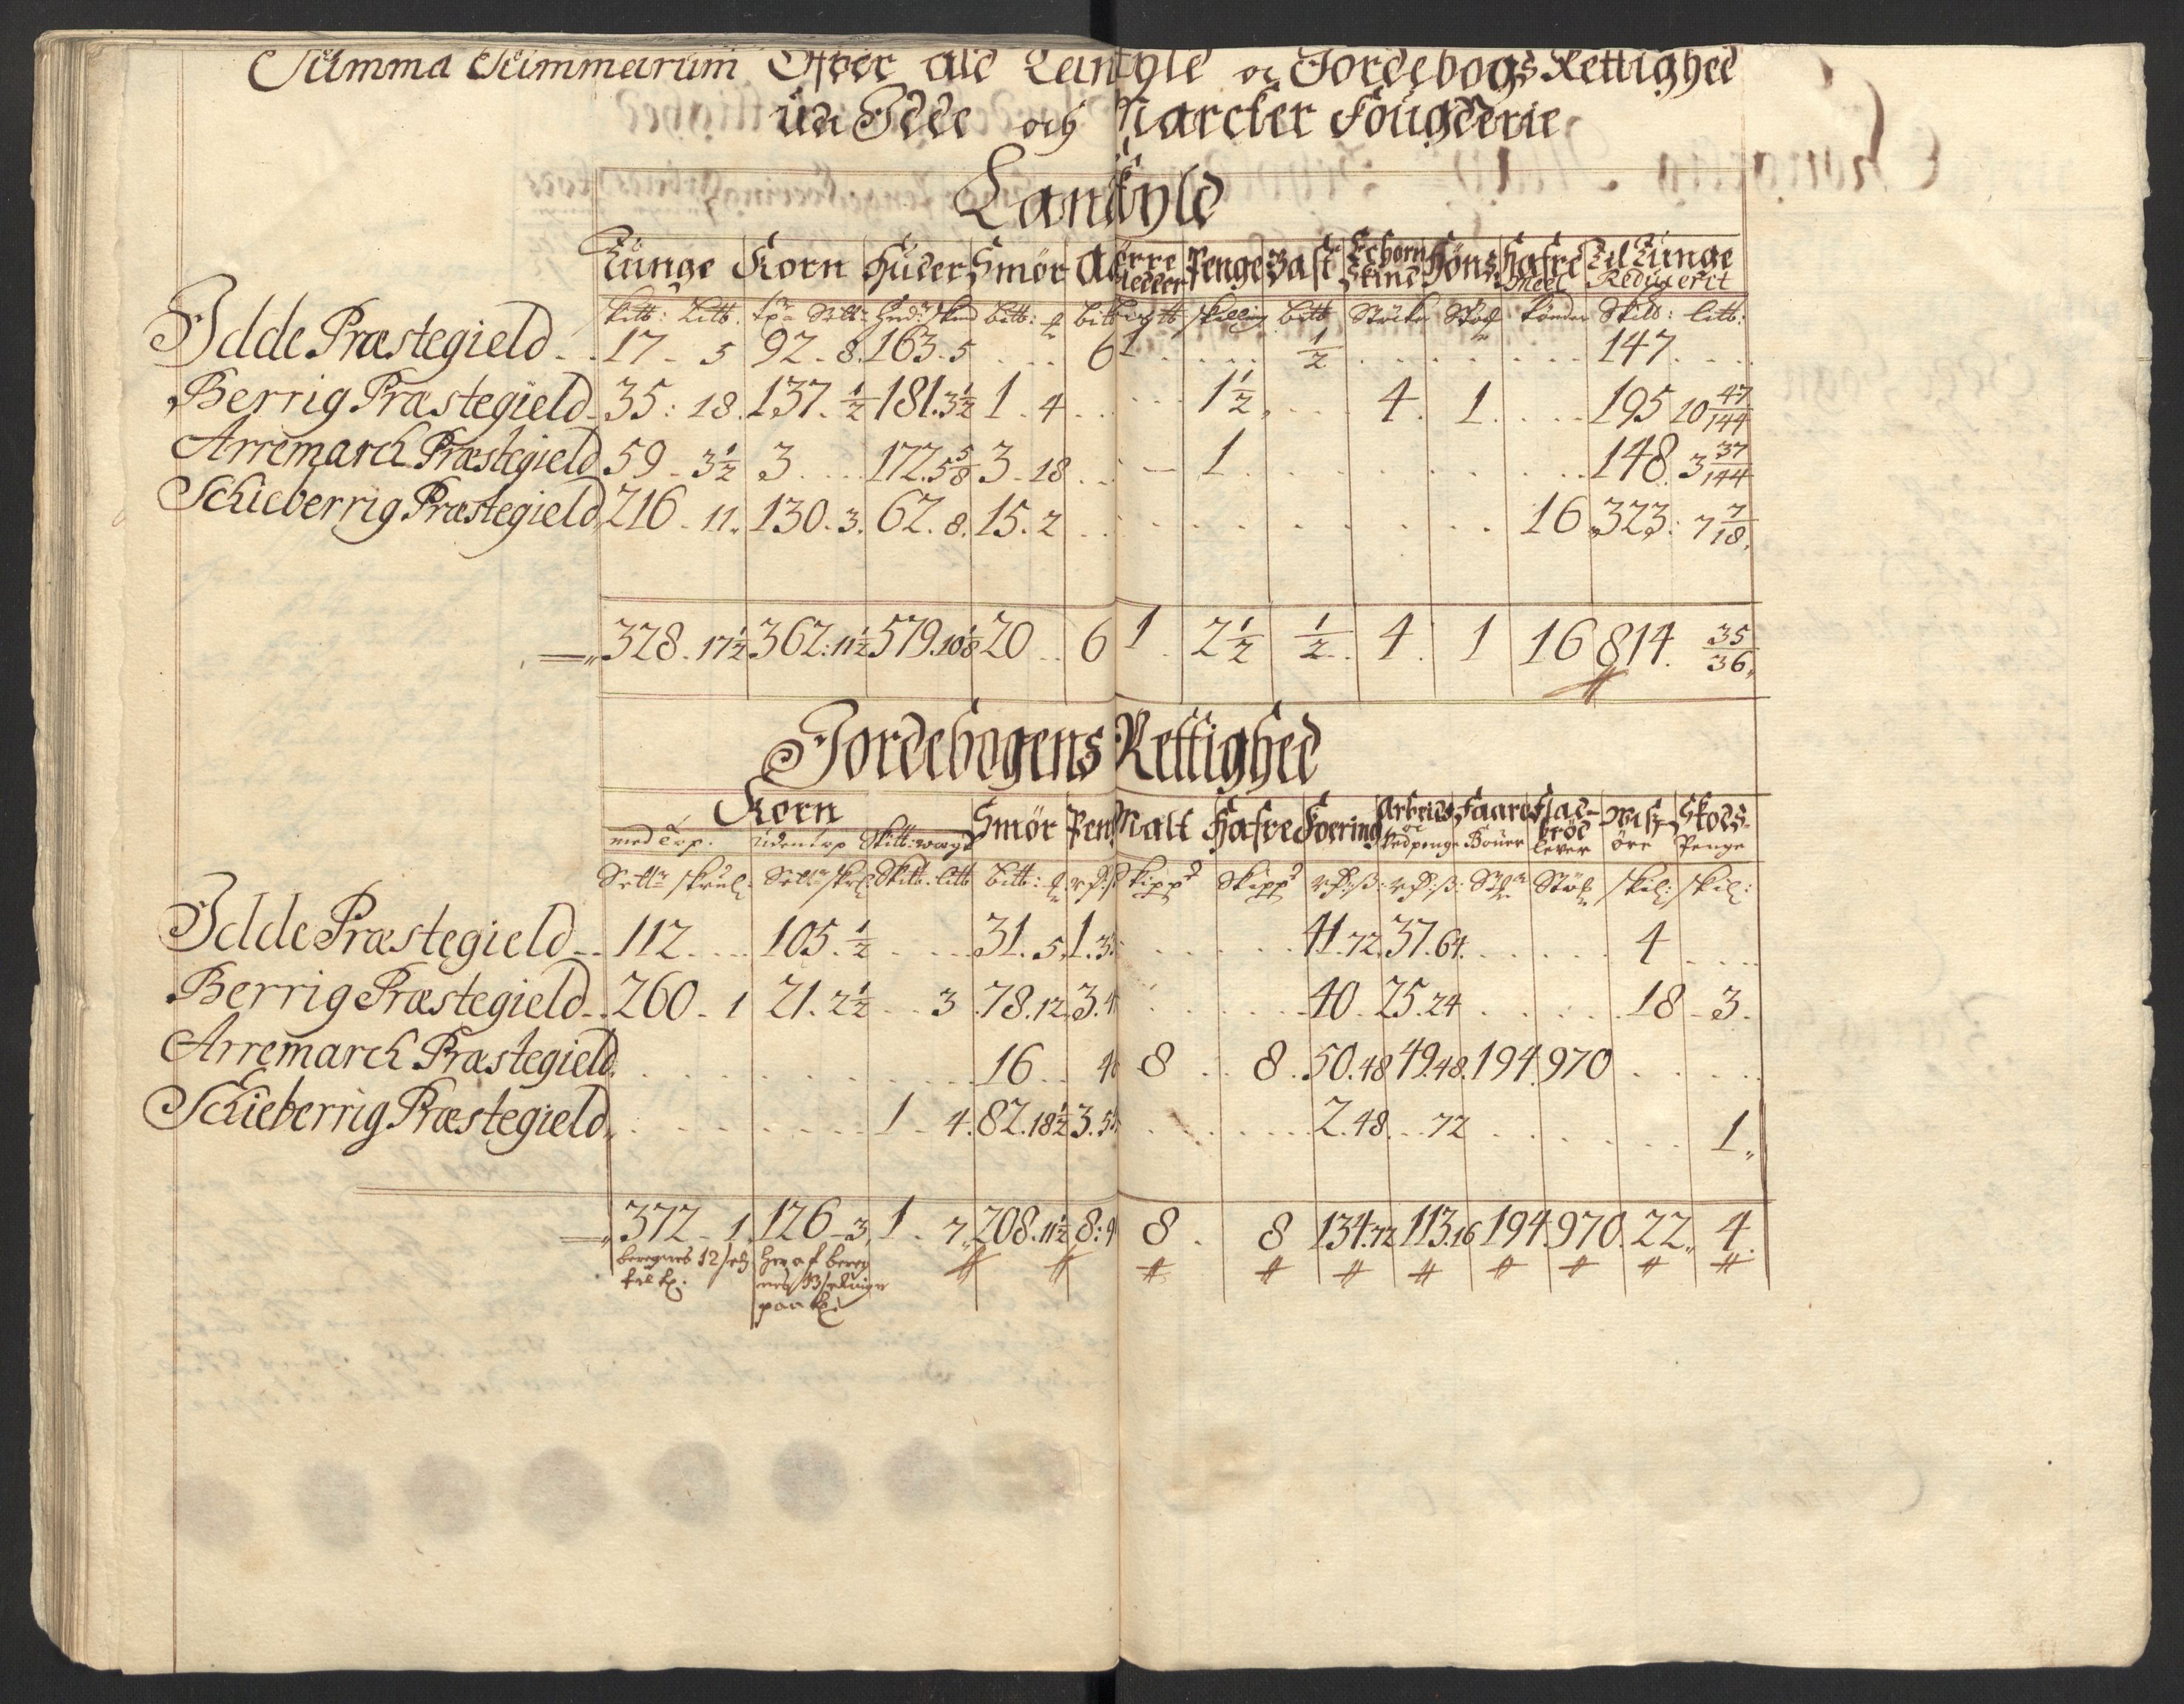 Summa Summarum Ofver ald Landgyld oc Jordebogs Rettighed
Udi Idde och Marcker Fougderie
Landgyld
Tünge Korn Hüder Smör Penge Bast Echorn Skind Höns Hafre Meel Til Tünge Reducerit
Idde Præstegield 17 - 5 92 - 8. 163 - 5 6 1 1/2 147
Berrig Præstegield 35: 18. 137 - 1/2 181. 3 1/2 1 - 4 1 1/2 4 1 195 10 47/144
Arremarch Præstegield 59 - 3 1/2 3 172. 5 5/8 3 - 18 1 148. 3 37/144
Schieberrig Præstegield 216 - 11. 130 - 3. 62. 8. 15. 2 16 323: 7 7/18.
328. 17 1/2 362: 11 1/2 579. 10 1/8 20 6 1 2 1/2 1/2 4 1 16 814. 35/36
Jordebogens Rettighed
Korn Smör Pen Malt Hafre Foering Arbeids oc Vedpenge Faare Bouer Flad-bröd lever Wisöre Skods-Penge
med Trp. uden trp
Idde Præstegield 112 105. 1/2 31. 5. 1. 3 41. 72. 37. 64. 4
Berrig Præstegield 260 - 1 21. 2 1/2 3 78. 12. 3. 4 40 - 25. 24 18 - 3.
Arremarch Præstegield 16 4 8 8. 50. 48 49. 48. 194. 970
Schieberrig Præstegield 1 - 4. 82. 18 1/2 3. 5 2. 48 72 1
372 - 1. 126 - 3. 1 - 7. 208. 11 1/2 8: 9 8 8 134. 72 113. 16 194. 970. 22 4.